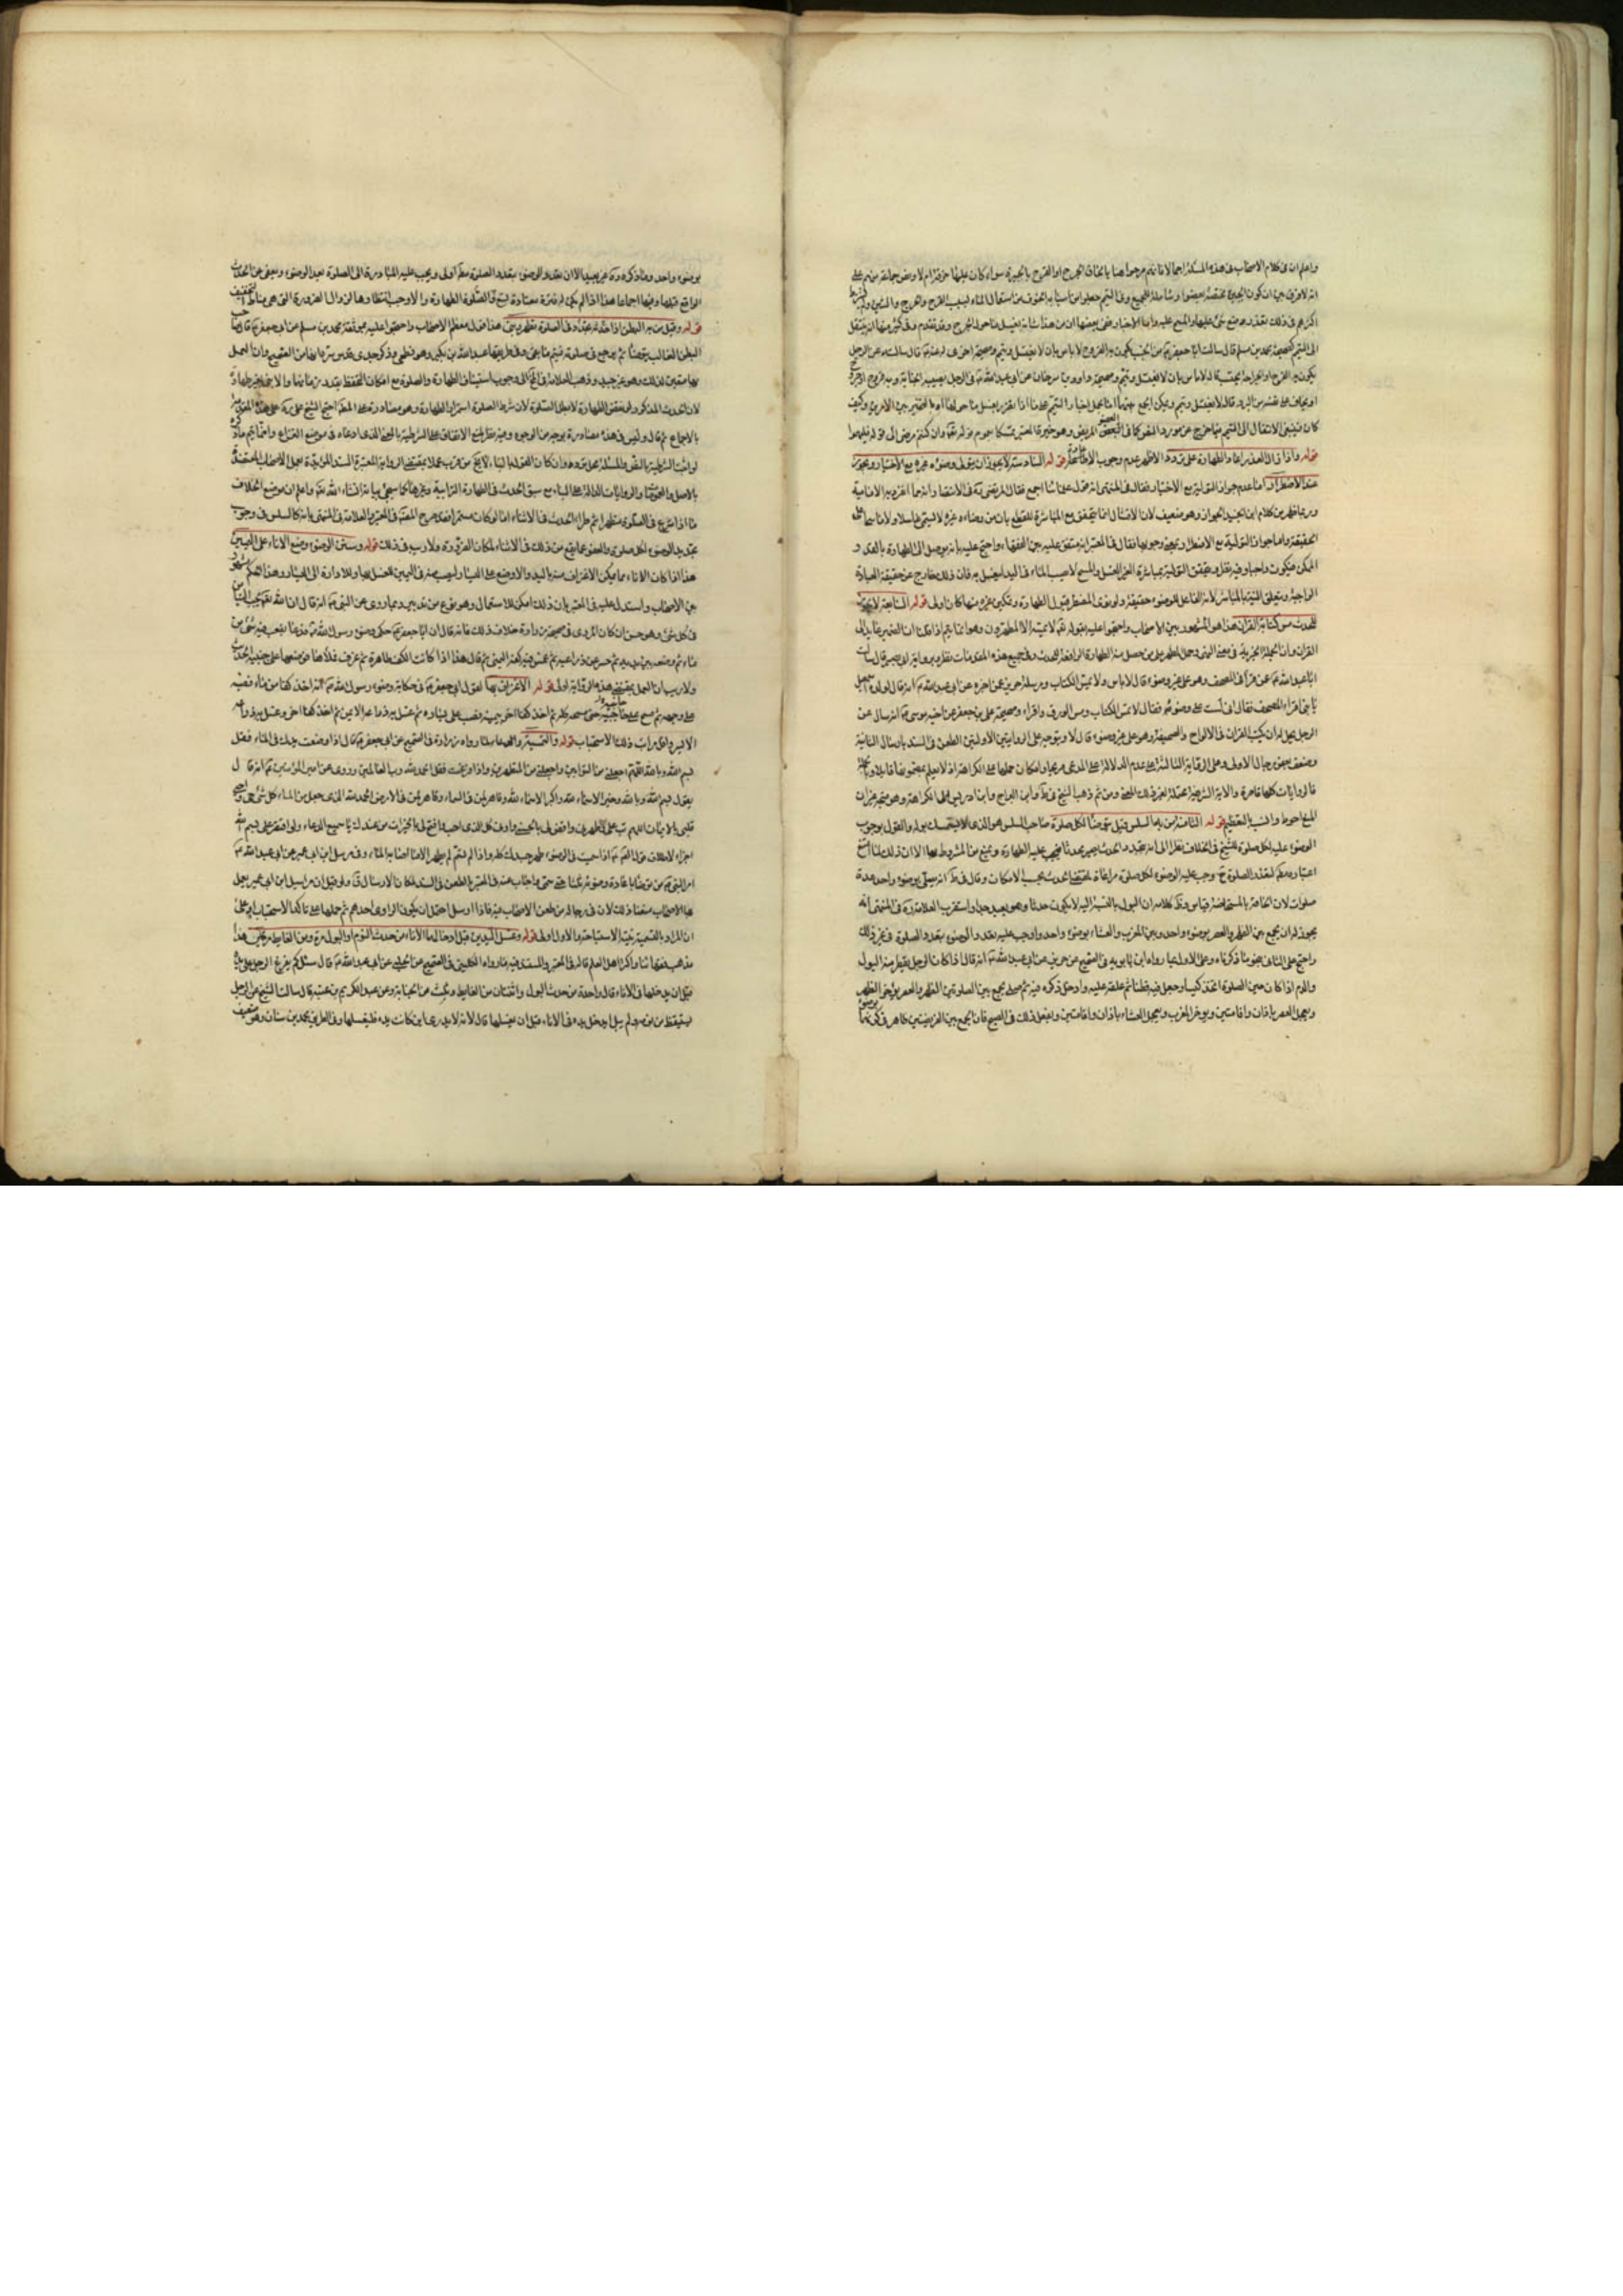 واعلم ان في كلام الاصحاب في هذه المسئلة اجمالا فانهم صرحوا هنا بالحاق الجرح او القرح بالجبيرة سواء كان عليها خرقة ام لا ونص جماعة منهم على
انه لا فرق بين ان تكون الجبيرة مختصة بعضو او شاملة للجميع وفي التيمم جعلوا من اسبابه الخوف من استعمال الماء بسبب القرح والجرح والشين ولم يشترط
اكثرهم في ذلك تعذر وضع شئ عليها والمسح عليه واما الاخبار ففي بعضها ان من هذا شانه يغسل ما حول الجرح وقد تقدم وفي كثير منها انه ينتقل
الى التيمم كصحيحة محمد بن مسلم قال سالت ابا جعفر ع عن الجنب تكون به القروح قال لا باس بان لا يغتسل ويتيمم وصحيحة اخرى له عنه ع قال سالته عن الرجل
يكون به القرح والجراحة يجنب قال لا باس بان لا يغتسل ويتيمم وصحيحة داود بن سرحان عن ابي عبد الله ع في الرجل تصيبه الجنابة وبه قروح او جروح
او يخاف على نفسه من البرد قال لا يغتسل ويتيمم ويمكن الجمع بينها اما بحمل اخبار التيمم على ما اذا تضرر بغسل ما حولها او بالتخيير بين الامرين وكيف
كان فينبغي الانتقال الى التيمم فيما خرج عن مورد النص كما في العضو المريض وهو خيرة المعتبر تمسكا بعموم قوله تعالى وان كنتم مرضى الى قوله فتيمموا
قوله واذا زال العذر اعاد الطهارة على تردد الاظهر عدم وجوب الاعادة قوله السادسة لا يجوز ان يتولى وضوءه غيره مع الاختيار ويجوز
عند الاضطرار اما عدم جواز التولية مع الاختيار فقال في المنتهى انه قول علمائنا اجمع فقال المرتضى ره في الانتصار انه مما انفردت به الامامية
وربما ظهر من كلام ابن الجنيد الجواز وهو ضعيف لان الامتثال انما يتحقق مع المباشرة للقطع بان من وضاه غيره لا يسمى غاسلا ولا ماسحا على
الحقيقة واما جواز التولية مع الاضطرار بمعنى وجوبها فقال في المعتبر انه متفق عليه بين الفقهاء واحتج عليه بانه توصل الى الطهارة بالقدر
الممكن فيكون واجبا وفيه نظر وتتحقق التولية بمباشرة الغير الغسل والمسح لا بصب الماء في اليد ليغسل به فان ذلك خارج عن حقيقة العبادة
الواجبة ويتعلق النية بالمباشر لانه الفاعل للوضوء حقيقة ولو نوى المضطر قبول الطهارة وتمكين غيره منها كان اولى قوله السابعة لا يجوز
للمحدث مس كتابة القران هذا هو المشهور بين الاصحاب واحتجوا عليه بقوله تعالى لا يمسه الا المطهرون وهو انما يتم اذا قلنا ان الضمير عايد الى
القران وان الجملة الخبرية في معنى النهي وحمل المطهر على من حصل منه الطهارة الرافعة للحدث وفي جميع هذه المقدمات نظر وبرواية ابي بصير قال سالت
ابا عبد الله ع عن من قرأ في المصحف وهو على غير وضوء قال لا باس ولا يمس الكتاب ومرسلة حريز عن من اخبره عن ابي عبد الله ع انه قال لولده اسمعيل
يا بني اقراء المصحف فقال اني لست على وضوء فقال لا تمس الكتاب ومس الورق واقراه وصحيحة علي بن جعفر عن اخيه موسى ع انه ساله عن
الرجل يحل له ان يكتب القران في الالواح والصحيفة وهو على غير وضوء قال لا ويتوجه على الروايتين الاولتين الطعن في السند بارسال الثانية
وضعف بعض رجال الاولى وعلى الرواية الثالثة عدم الدلالة على المدعى صريحا وامكان حملها على الكراهة اذ لا نعلم بمضمونها قائلا وبالجملة
فالروايات كلها قاصرة والاية الشريفة محتملة لغير ذلك المعنى ومن ثم ذهب الشيخ في ط وابن البراج وابن ادريس الى الكراهة وهو متجه غير ان
المنع احوط وانسب بالتعظيم قوله الثامنة من به السلس قيل يتوضا لكل صلوة صاحب السلس هو الذي لا يستمسك بوله والقول بوجوب
الوضوء عليه لكل صلوة للشيخ في الخلاف نظرا الى انه بتجدد الحدث يصير محدثا فتجب عليه الطهارة ويمنع من المشروط بها الا ان ذلك لما امتنع
اعتباره مطلقا لتعذر الصلوة ح وجب عليه الوضوء لكل صلوة مراعاة لمقتضى الحدث بحسب الامكان وقال في ط انه يصلي بوضوء واحد عدة
صلوات لان الحاقه بالمستحاضة قياس وظاهر كلامه ان البول بالنسبة اليه لا يكون حدثا وهو بعيد جدا واستقرب العلامة ره في المنتهى انه
يجوز له ان يجمع بين الظهر والعصر بوضوء واحد وبين المغرب والعشاء بوضوء واحد واوجب عليه تعدد الوضوء بتعدد الصلوة في غير ذلك
واحتج على الثاني بنحو ما ذكرناه وعلى الاول بما رواه ابن بابويه في الصحيح عن حريز عن ابي عبد الله ع انه قال اذا كان الرجل يقطر منه البول
والدم اذا كان حين الصلوة اتخذ كيسا وجعل فيه قطنا ثم علقه عليه وادخل ذكره فيه ثم صلى يجمع بين الصلوتين الظهر والعصر يؤخر الظهر
ويعجل العصر باذان واقامتين ويوخر المغرب ويعجل العشاء باذان واقامتين ويفعل ذلك في الصبح فان الجمع بين الفريضتين ظاهر في كونهما
بوضوء واحد وما ذكره ره غير بعيد الا ان تعدد الوضوء بتعدد الصلوة مطلقا اولى ويجب عليه المبادرة الى الصلوة بعد الوضوء ويعفى عن الحدث
الواقع قبلها وفيها اجماعا هذا اذا لم يكن له فترة معتادة تسع الصلوة الطهارة والا وجب انتظارها لزوال الضرورة التي هي مناط التخفيف
قوله وقيل من به البطن اذا تجدد حدثه في الصلوة تطهر وبنى هذا قول معظم الاصحاب واحتجوا عليه بموثقة محمد بن مسلم عن ابي جعفر ع قال صاحب
البطن الغالب يتوضا ثم يرجع في صلوته فيتم ما بقي وفي طريقها عبد الله بن بكير وهو فطحي وذكر جدي قدس سره انها من الصحيح وان العمل
بها متعين لذلك وهو غير جيد وذهب العلامة في المختلف الى وجوب استيناف الطهارة والصلوة مع امكان التحفظ بقدر زمانهما والا بنى بغير طهارة
لان الحدث المذكور لو نقض الطهارة لابطل الصلوة لان شرط الصلوة استمرار الطهارة وهو مصادرة على المطلوب احتج الشيخ
بالاجماع ثم قال وليس في هذه مصادرة بوجه من الوجوه وفيه نظر لمنع الاتفاق على الشرطية بالمعنى الذي ادعاه في موضع النزاع وانما يتم ما ذكره
لو اثبت الشرطية بالنص والمسئلة محل تردد وان كان القول بالبناء لا يخ من قرب عملا بمقتضى الرواية المعتبرة السند المؤيدة بعمل الاصحاب المعتضدة
بالاصل والعمومات والروايات الدالة على البناء مع سبق الحدث في الطهارة الترابية وغيرها كما سيجئ بيانه انشاء الله تعالى واعلم ان موضع الخلاف
ما اذا شرع في الصلوة متطهرا ثم طرا الحدث في الاثناء اما لو كان مستمرا فقد صرح المصنف في المعتبر والعلامة في المنتهى بانه كالسلس في وجوب
تجديد الوضوء لكل صلوة والعفو عما يقع من ذلك في الاثناء لمكان الضرورة ولا ريب في ذلك قوله وسنن الوضوء وضع الاناء على اليمين
هذا اذا كان الاناء مما يمكن الاغتراف منه باليد والا وضع على اليسار ليصب منه في اليمين للغسل بها وللادارة الى اليسار وهذا الحكم مشهور
بين الاصحاب واستدل عليه في المعتبر بان ذلك امكن للاستعمال وهو نوع من تدبير وبما روي عن النبي ص انه قال ان الله يحب التيامن
في كل شئ وهو حسن وان كان المروي في صحيحة زرارة خلاف ذلك فانه قال ان ابا جعفر ع حكى وضوء رسول الله ص فدعا بقعب فيه شئ من
ماء ثم وضعه بين يديه ثم حسر عن ذراعيه ثم غمس فيه كفه اليمنى ثم قال هذا اذا كانت الكف طاهرة ثم غرف فملأها فوضعها على جبينه الحديث
ولا ريب ان العمل بمقتضى هذه الرواية اولى قوله الاغتراف بها لقول ابي جعفر ع في حكاية وضوء رسول الله ص انه اخذ كفا من ماء فصبه
على وجهه ثم مسح جانبيه حتى مسحه كله ثم اخذ كفا اخر بيمينه فصب على يساره ثم غسل به ذراعه الايمن ثم اخذ كفا اخر وغسل به ذراعه
الايسر واقل مراتب ذلك الاستحباب قوله والتسمية والدعاء لما رواه زرارة في الصحيح عن ابي جعفر ع قال اذا وضعت يدك في الماء فقل
بسم الله وبالله اللهم اجعلني من التوابين واجعلني من المتطهرين واذا فرغت فقل الحمد لله رب العالمين وروي عن امير المؤمنين ع انه قال
يقول بسم الله وبالله وخير الاسماء لله واكبر الاسماء لله وقاهر لمن في السماء وقاهر لمن في الارض الحمد لله الذي جعل من الماء كل شئ حي واحيى
قلبي بالايمان اللهم تب علي وطهرني واقض لي بالحسنى وارني كل الذي احب وافتح لي بالخيرات من عندك يا سميع الدعاء ولو اقتصر على بسم الله
اجزاء لاطلاق قول الصادق ع اذا سميت في الوضوء طهر جسدك كله واذا لم تسم لم يطهر الا ما اصابه الماء وفي مرسل ابن ابي عمير عن ابي عبد الله ع
امر النبي ص من توضا باعادة وضوئه ثلثا حتى سمى واجاب عنه في المعتبر بالطعن في السند لمكان الارسال قال ولو قيل ان مراسيل ابن ابي عمير يعمل
بها الاصحاب منعنا ذلك لان في رجاله من طعن الاصحاب فيه فاذا ارسل احتمل ان يكون الراوي احدهم ثم حملها على تاكد الاستحباب
ان المراد بالتسمية نية الاستباحة والاول اولى قوله وغسل اليدين قبل ادخالهما الاناء من حدث النوم او البول مرة ومن الغايط مرتين هذا
مذهب فقهائنا واكثر اهل العلم قاله في المعتبر والمستند فيه ما رواه الكليني في الصحيح عن الحلبي عن ابي عبد الله ع قال سئل كم يفرغ الرجل على يده
قبل ان يدخلها في الاناء قال واحدة من حدث البول واثنتان من الغايط وثلث من الجنابة وعن عبد الكريم بن عتبة قال سالت الشيخ عن الرجل
يستيقظ من نومه ولم يبل ايدخل يده في الاناء قبل ان يغسلها قال لا لانه لا يدري اين كانت يده فليغسلها وفي الطريق محمد بن سنان وهو ضعيف